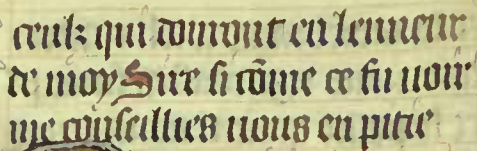 ceulz qui donront en lenneur
de moy Sire si cõme ce fu uoir
me conseillies uous en pitie